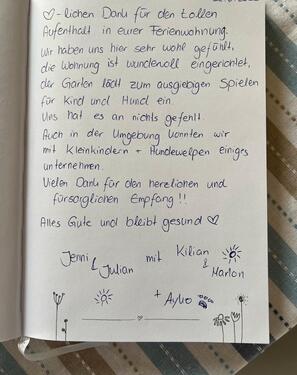 ♡-lichen Dank für den tollen
Aufenthalt in eurer Ferienwohnung.
Wir haben uns hier sehr wohl gefühlt,
die Wohnung ist wundervoll eingerichtet,
der Garten lädt zum ausgiebigen Spielen
für Kind und Hund ein.
Uns hat es an nichts gefehlt.
Auch in der Umgebung konnten wir
mit Kleinkindern + Hundewelpen einiges
unternehmen.
Vielen Dank für den herzlichen und
fürsorglichen Empfang !!
Alles Gute und bleibt gesund ♡
Jenni & Julian mit Kilian & Marlon
+ Ayko